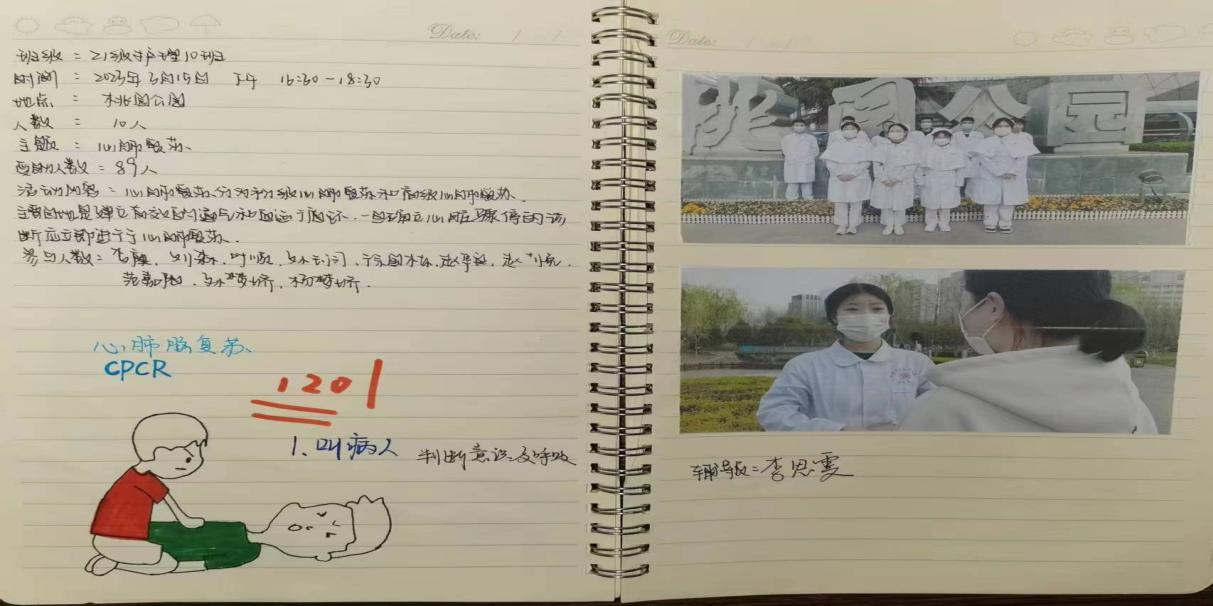 Date: / /
班级：21级护理10班
时间：2023年3月15日 下午 16:30-18:30
地点：桃园公园
人数：10人
主题：心肺复苏
受助人数：89人
活动内容：心肺复苏分为初级心肺复苏和高级心肺复苏.
主要目的是建立有效的 通气和血运循环.一旦确立心脏骤停的诊
断应立即进行心肺复苏.
参与人数：
心肺脑复苏
CPCR
120
1.叫病人 判断意识及呼吸
Date: / /
桃园公园
辅导员：李思雯